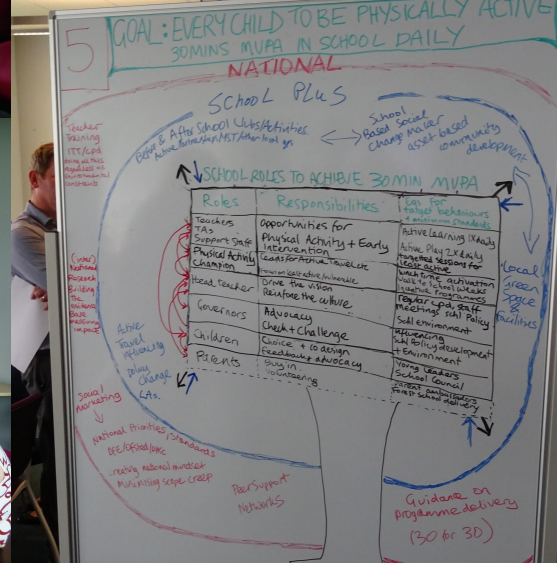 5
GOAL: EVERY CHILD TO BE PHYSICALLY ACTIVE
30MINS MVPA IN SCHOOL DAILY
NATIONAL
SCHOOL PLUS
Teacher
Training
ITT/CPD
Before & After School Clubs/Activities
School
Based Social
Change maker
asset based
community
development
SCHOOL ROLES TO ACHIEVE 30MIN MVPA
Roles
Responsibilities
target behaviours
Teachers
TAs
Support Staff
Opportunities for
Physical Activity + Early
Intervention
Active Learning 1x daily
Active Play 2x daily
targeted sessions for
least active
Physical Activity
Champion
Leads for Active Travel etc
lunchtime activation
Walk to School Weeks
Head teacher
Drive the vision
Reinforce the culture
regular cpd, staff
Meetings schl Policy
Schl environment
Governors
Advocacy
Check + Challenge
influencing
Schl Policy development
+ Environment
Children
Choice + co design
feedback + advocacy
Young Leaders
School Council
Parents
Buy in
Volunteering
Parent ambassadors
forest school delivery
Local
Green
Space &
facilities
National
Research
Building
the
evidence
Base
measuring
impact
Active
Travel
influencing
policy
Change
LAs.
Social
Marketing
National Priorities, Standards
DFE/Ofsted/
creating national mindset
Minimising scope creep
Peer Support
Networks
Guidance on
programme delivery
(30 for 30)